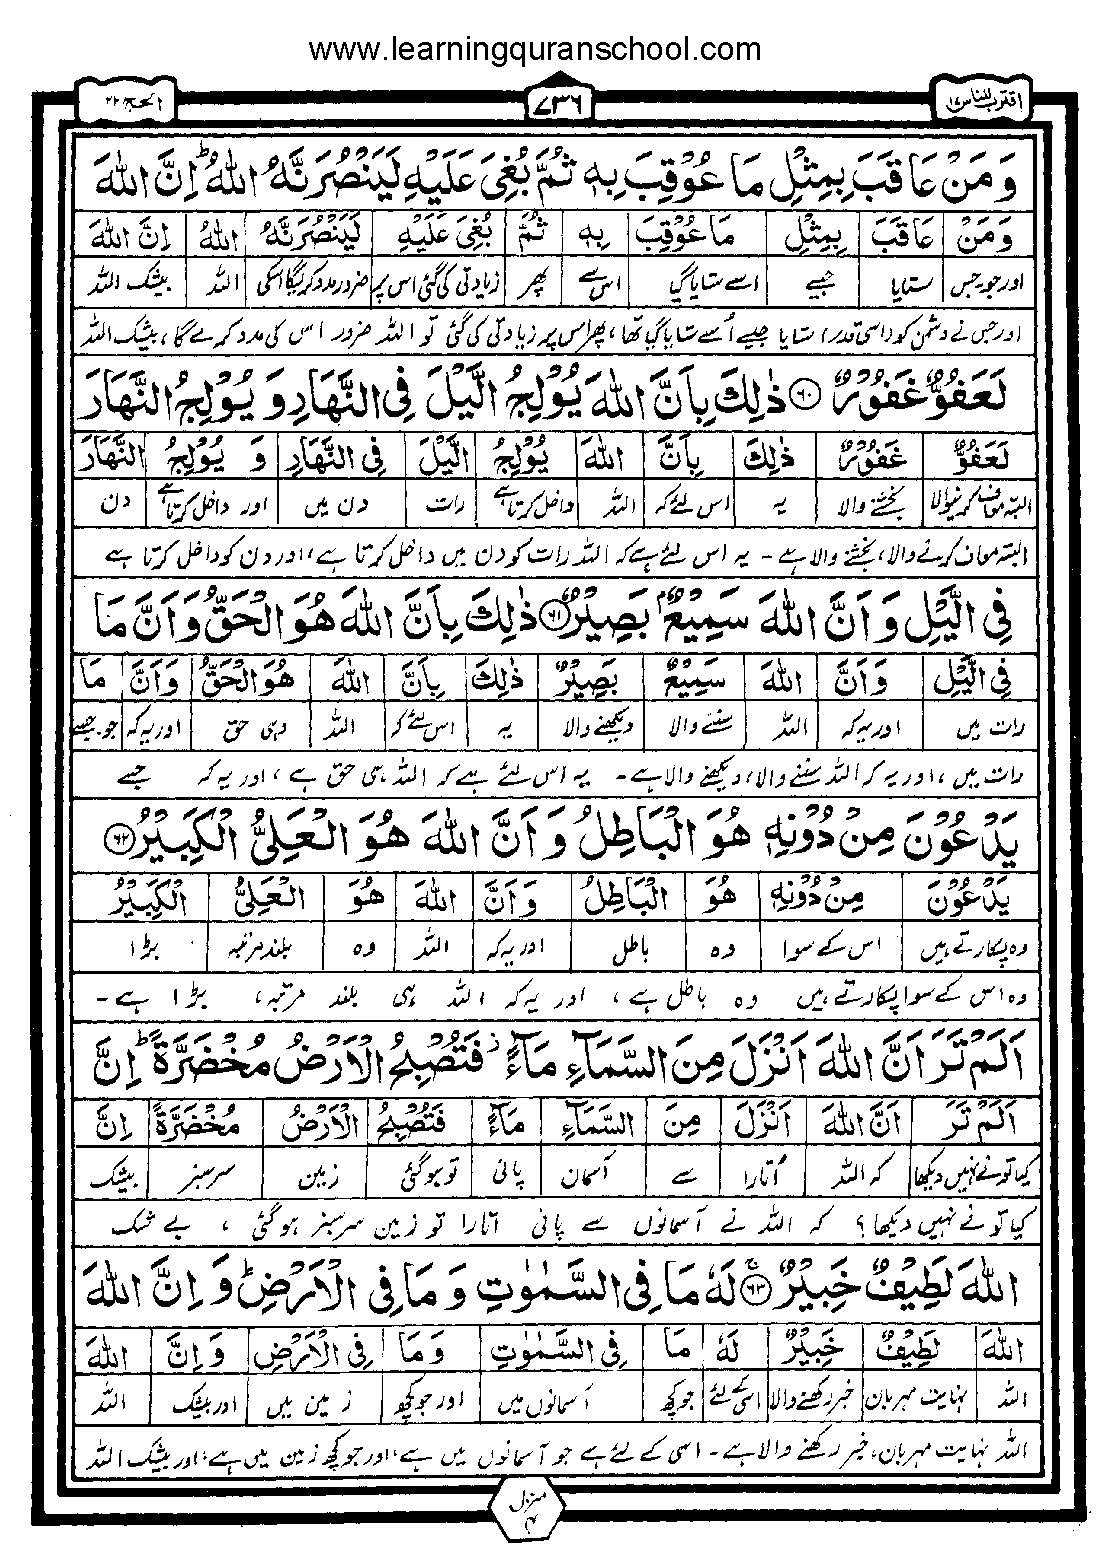 www.learningquranschool.com
اقترب للناس ۱۷
۷۳۶
الحج ۲۲
وَمَنْ عَاقَبَ بِمِثْلِ مَا عُوْقِبَ بِهٖ ثُمَّ بُغِیَ عَلَیْهِ لَیَنْصُرَنَّهُ اللّٰهُ ؕ اِنَّ اللّٰهَ
وَمَنْ عَاقَبَ بِمِثْلِ مَا عُوْقِبَ بِهٖ ثُمَّ بُغِیَ عَلَیْهِ لَیَنْصُرَنَّهُ اللّٰهُ اِنَّ اللّٰهَ
اور جو جس ستایا جیسے اسے ستایا گیا اس سے پھر زیادتی کی گئی اس پر ضرور مدد کریگا اسکی اللہ بیشک اللہ
اور جس نے دشمن کو (اسی قدر) ستایا جیسے اُسے ستایا گیا تھا، پھر اس پر زیادتی کی گئی تو اللہ ضرور اس کی مدد کرے گا، بیشک اللہ
لَعَفُوٌّ غَفُوْرٌ ۶۰ ذٰلِكَ بِاَنَّ اللّٰهَ یُوْلِجُ الَّیْلَ فِی النَّهَارِ وَ یُوْلِجُ النَّهَارَ
لَعَفُوٌّ غَفُوْرٌ ذٰلِكَ بِاَنَّ اللّٰهَ یُوْلِجُ الَّیْلَ فِی النَّهَارِ وَ یُوْلِجُ النَّهَارَ
البتہ معاف کرنیوالا بخشنے والا یہ اس لئے کہ اللہ داخل کرتا ہے رات دن میں اور داخل کرتا ہے دن
البتہ معاف کرنے والا، بخشنے والا ہے ۔ یہ اس لئے ہے کہ اللہ رات کو دن میں داخل کرتا ہے، اور دن کو داخل کرتا ہے
فِی الَّیْلِ وَ اَنَّ اللّٰهَ سَمِیْعٌۢ بَصِیْرٌ ۶۱ ذٰلِكَ بِاَنَّ اللّٰهَ هُوَ الْحَقُّ وَ اَنَّ مَا
فِی الَّیْلِ وَ اَنَّ اللّٰهَ سَمِیْعٌۢ بَصِیْرٌ ذٰلِكَ بِاَنَّ اللّٰهَ هُوَ الْحَقُّ وَ اَنَّ مَا
رات میں اور یہ کہ اللہ سننے والا دیکھنے والا یہ اس لئے کہ اللہ وہی حق اور یہ کہ جو۔جسے
رات میں، اور یہ کہ اللہ سننے والا، دیکھنے والا ہے ۔ یہ اس لئے ہے کہ اللہ ہی حق ہے، اور یہ کہ جسے
یَدْعُوْنَ مِنْ دُوْنِهٖ هُوَ الْبَاطِلُ وَ اَنَّ اللّٰهَ هُوَ الْعَلِیُّ الْكَبِیْرُ ۶۲
یَدْعُوْنَ مِنْ دُوْنِهٖ هُوَ الْبَاطِلُ وَ اَنَّ اللّٰهَ هُوَ الْعَلِیُّ الْكَبِیْرُ
وہ پکارتے ہیں اس کے سوا وہ باطل اور یہ کہ اللہ وہ بلند مرتبہ بڑا
وہ اس کے سوا پکارتے ہیں وہ باطل ہے، اور یہ کہ اللہ ہی بلند مرتبہ، بڑا ہے ۔
اَلَمْ تَرَ اَنَّ اللّٰهَ اَنْزَلَ مِنَ السَّمَآءِ مَآءً ؗ فَتُصْبِحُ الْاَرْضُ مُخْضَرَّةً ؕ اِنَّ
اَلَمْ تَرَ اَنَّ اللّٰهَ اَنْزَلَ مِنَ السَّمَآءِ مَآءً فَتُصْبِحُ الْاَرْضُ مُخْضَرَّةً اِنَّ
کیا تو نے نہیں دیکھا کہ اللہ اُتارا سے آسمان پانی تو ہو گئی زمین سرسبز بیشک
کیا تو نے نہیں دیکھا؟ کہ اللہ نے آسمانوں سے پانی اتارا تو زمین سرسبز ہو گئی، بے شک
اللّٰهَ لَطِیْفٌ خَبِیْرٌ ۶۳ لَهٗ مَا فِی السَّمٰوٰتِ وَ مَا فِی الْاَرْضِ ؕ وَ اِنَّ اللّٰهَ
اللّٰهَ لَطِیْفٌ خَبِیْرٌ لَهٗ مَا فِی السَّمٰوٰتِ وَ مَا فِی الْاَرْضِ وَ اِنَّ اللّٰهَ
اللہ نہایت مہربان خبر رکھنے والا اسی کے لئے جو کچھ آسمانوں میں اور جو کچھ زمین میں اور بیشک اللہ
اللہ نہایت مہربان، خبر رکھنے والا ہے ۔ اسی کے لئے ہے جو آسمانوں میں ہے، اور جو کچھ زمین میں ہے، اور بیشک اللہ
منزل
۴